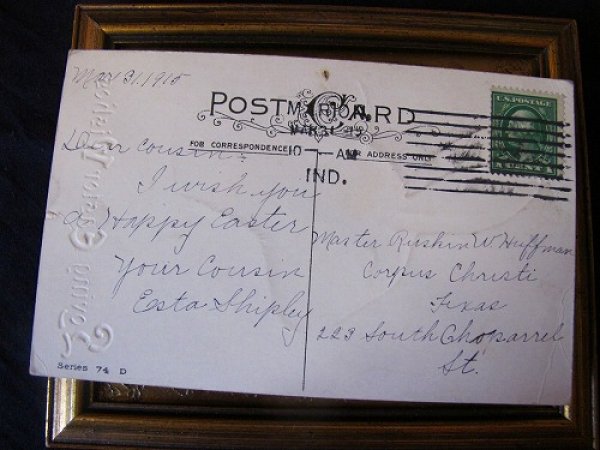 Mar 31, 1915
POST CARD
MARION.
MAR 31
10 - AM
IND.
U.S. POSTAGE
FOR CORRESPONDENCE
FOR ADDRESS ONLY
Dear Cousin:
I wish you
A Happy Easter
Your Cousin
Esta Shipley
Master Ruskin W. Huffman
Corpus Christi
Texas
223 South Choparrel
St.
Series 74 D